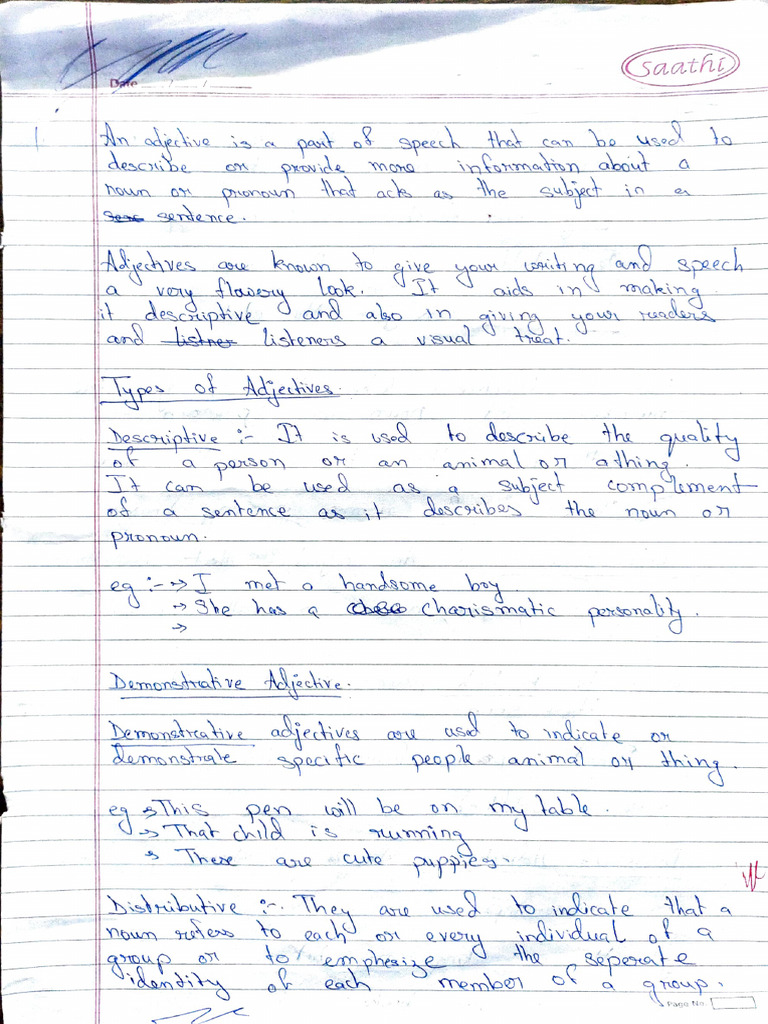 Saathi
Date
1. An adjective is a part of speech that can be used to
describe or provide more information about a
noun or pronoun that acts as the subject in a
sentence.
Adjectives are known to give your writing and speech
a very flowery look. It aids in making
it descriptive and also in giving your readers
and listner listeners a visual treat.
Types of Adjectives.
Descriptive :- It is used to describe the quality
of a person or an animal or a thing.
It can be used as a subject complement
of a sentence as it describes the noun or
pronoun.
eg :- → I met a handsome boy
→ She has a charismatic personality.
→
Demonstrative Adjective.
Demonstreative adjectives are used to indicate or
demonstrate specific people animal or thing.
eg → This pen will be on my table.
→ That child is running
→ These are cute puppies.
Distributive :- They are used to indicate that a
noun refers to each or every individual of a
group or to empherize the seperate
identity of each member of a group.
Page No.